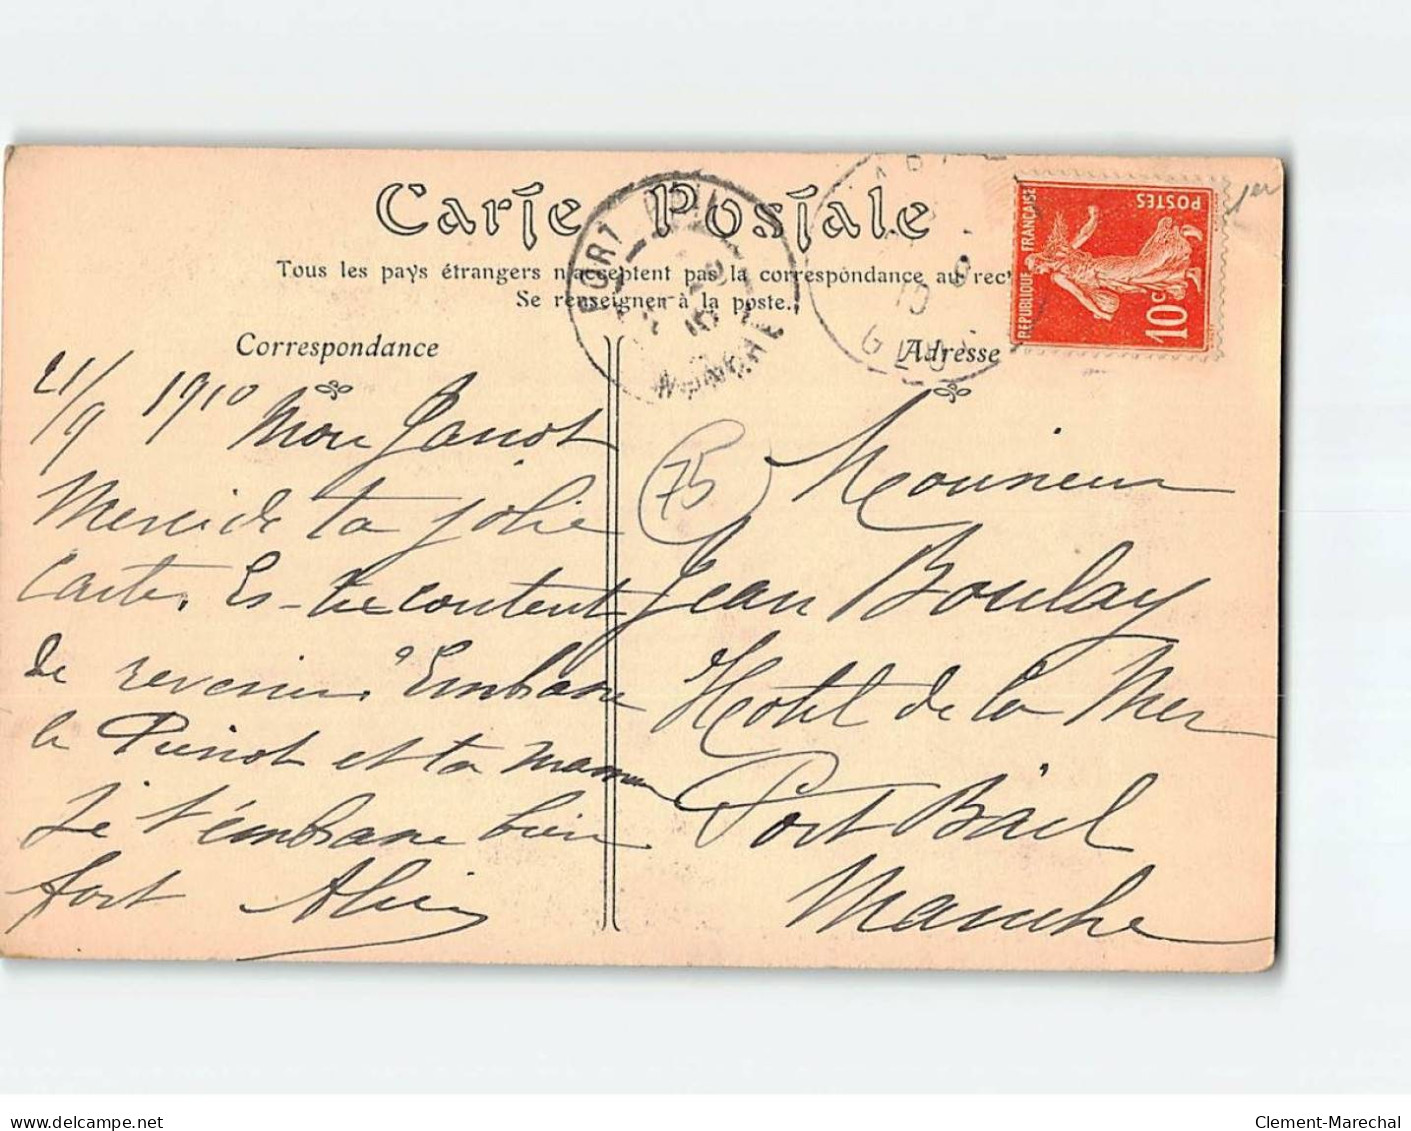 Carte Postale
Tous les pays étrangers n'acceptent pas la correspondance au rect
Se renseigner à la poste.
Correspondance
Adresse
PORT BAIL
MANCHE
REPUBLIQUE FRANÇAISE
POSTES
10c
1er
75
21/9 1910 Mon Janot
Merci de ta jolie
carte. Es-tu content
de revenir? Embrasse
le Pierrot et ta maman
Je t'embrasse bien
fort
Monsieur
Jean Boulay
Hotel de la Mer
Port Bail
Manche
Clement-Marechal